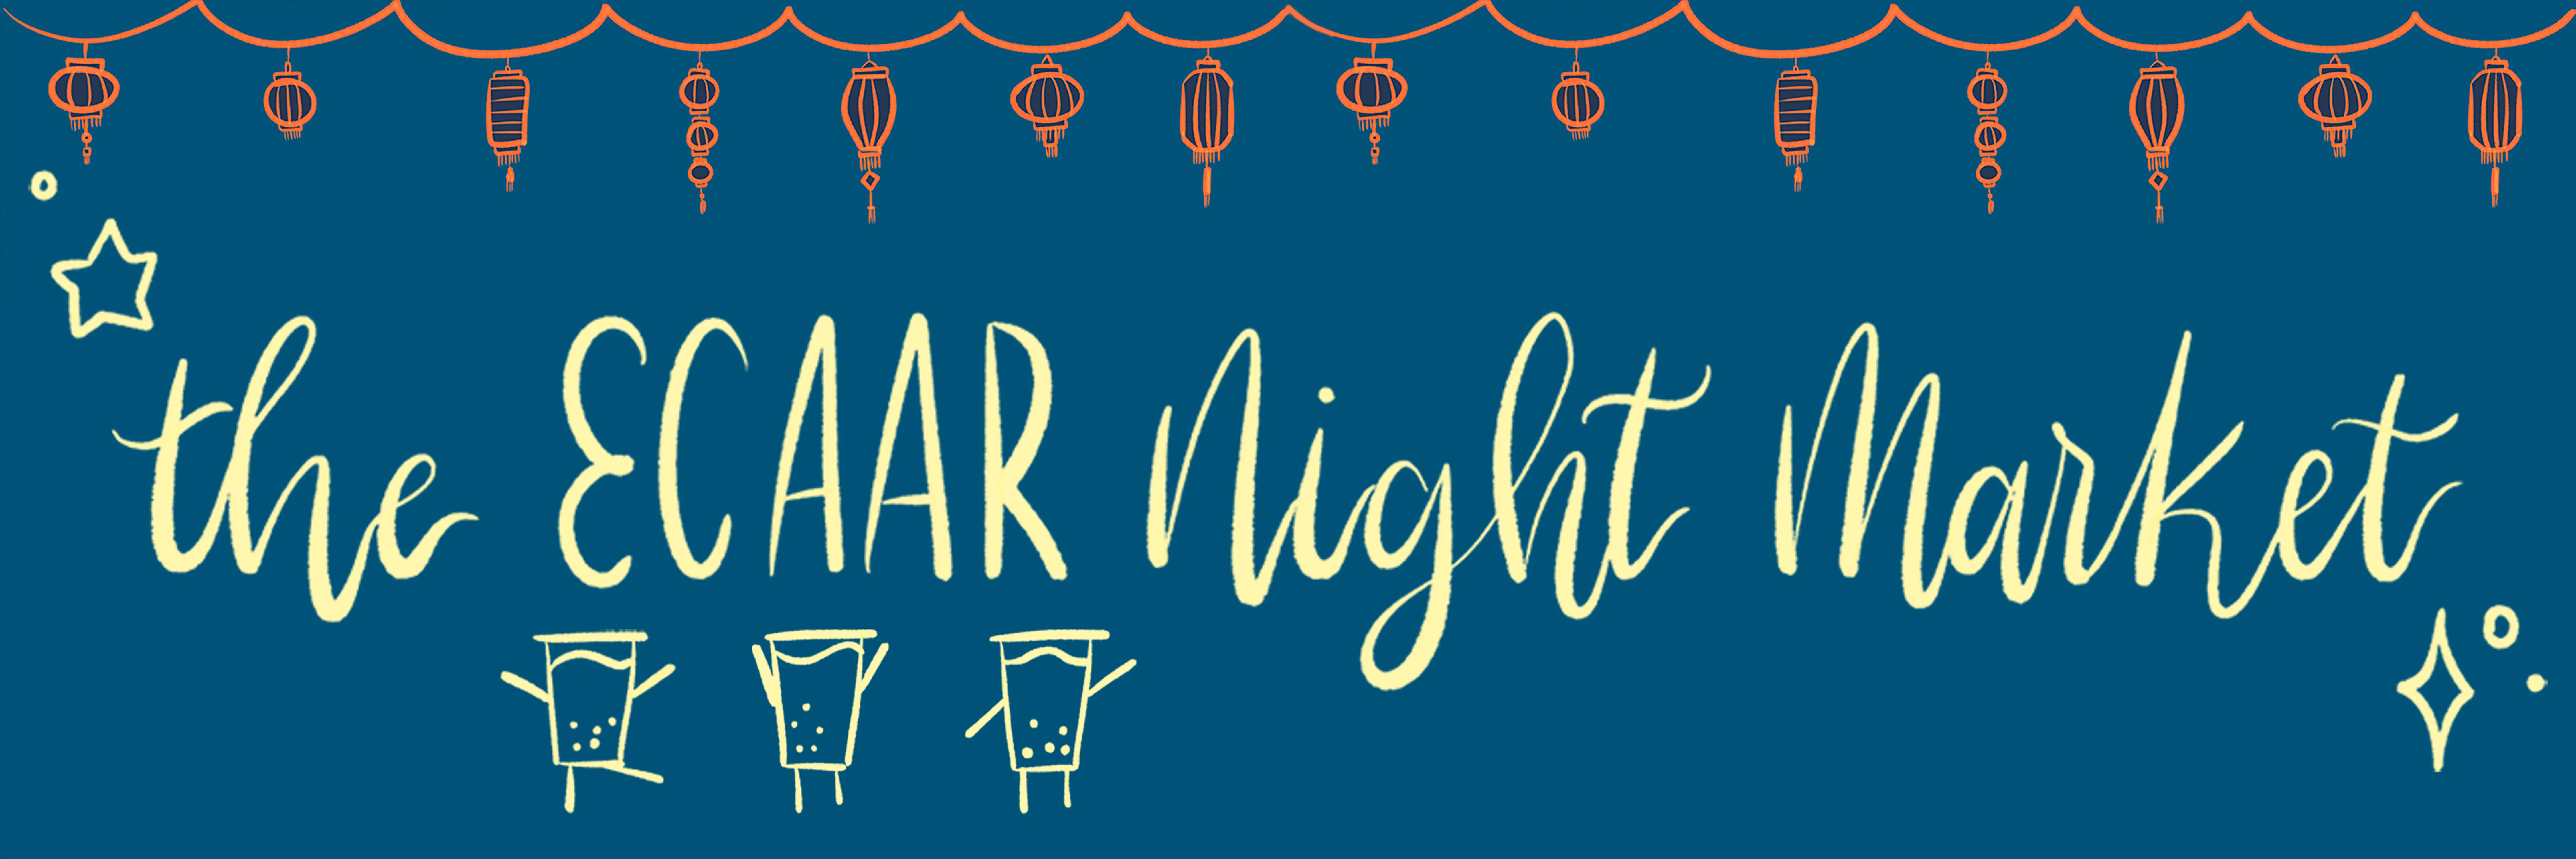 the ECAAR Night Market